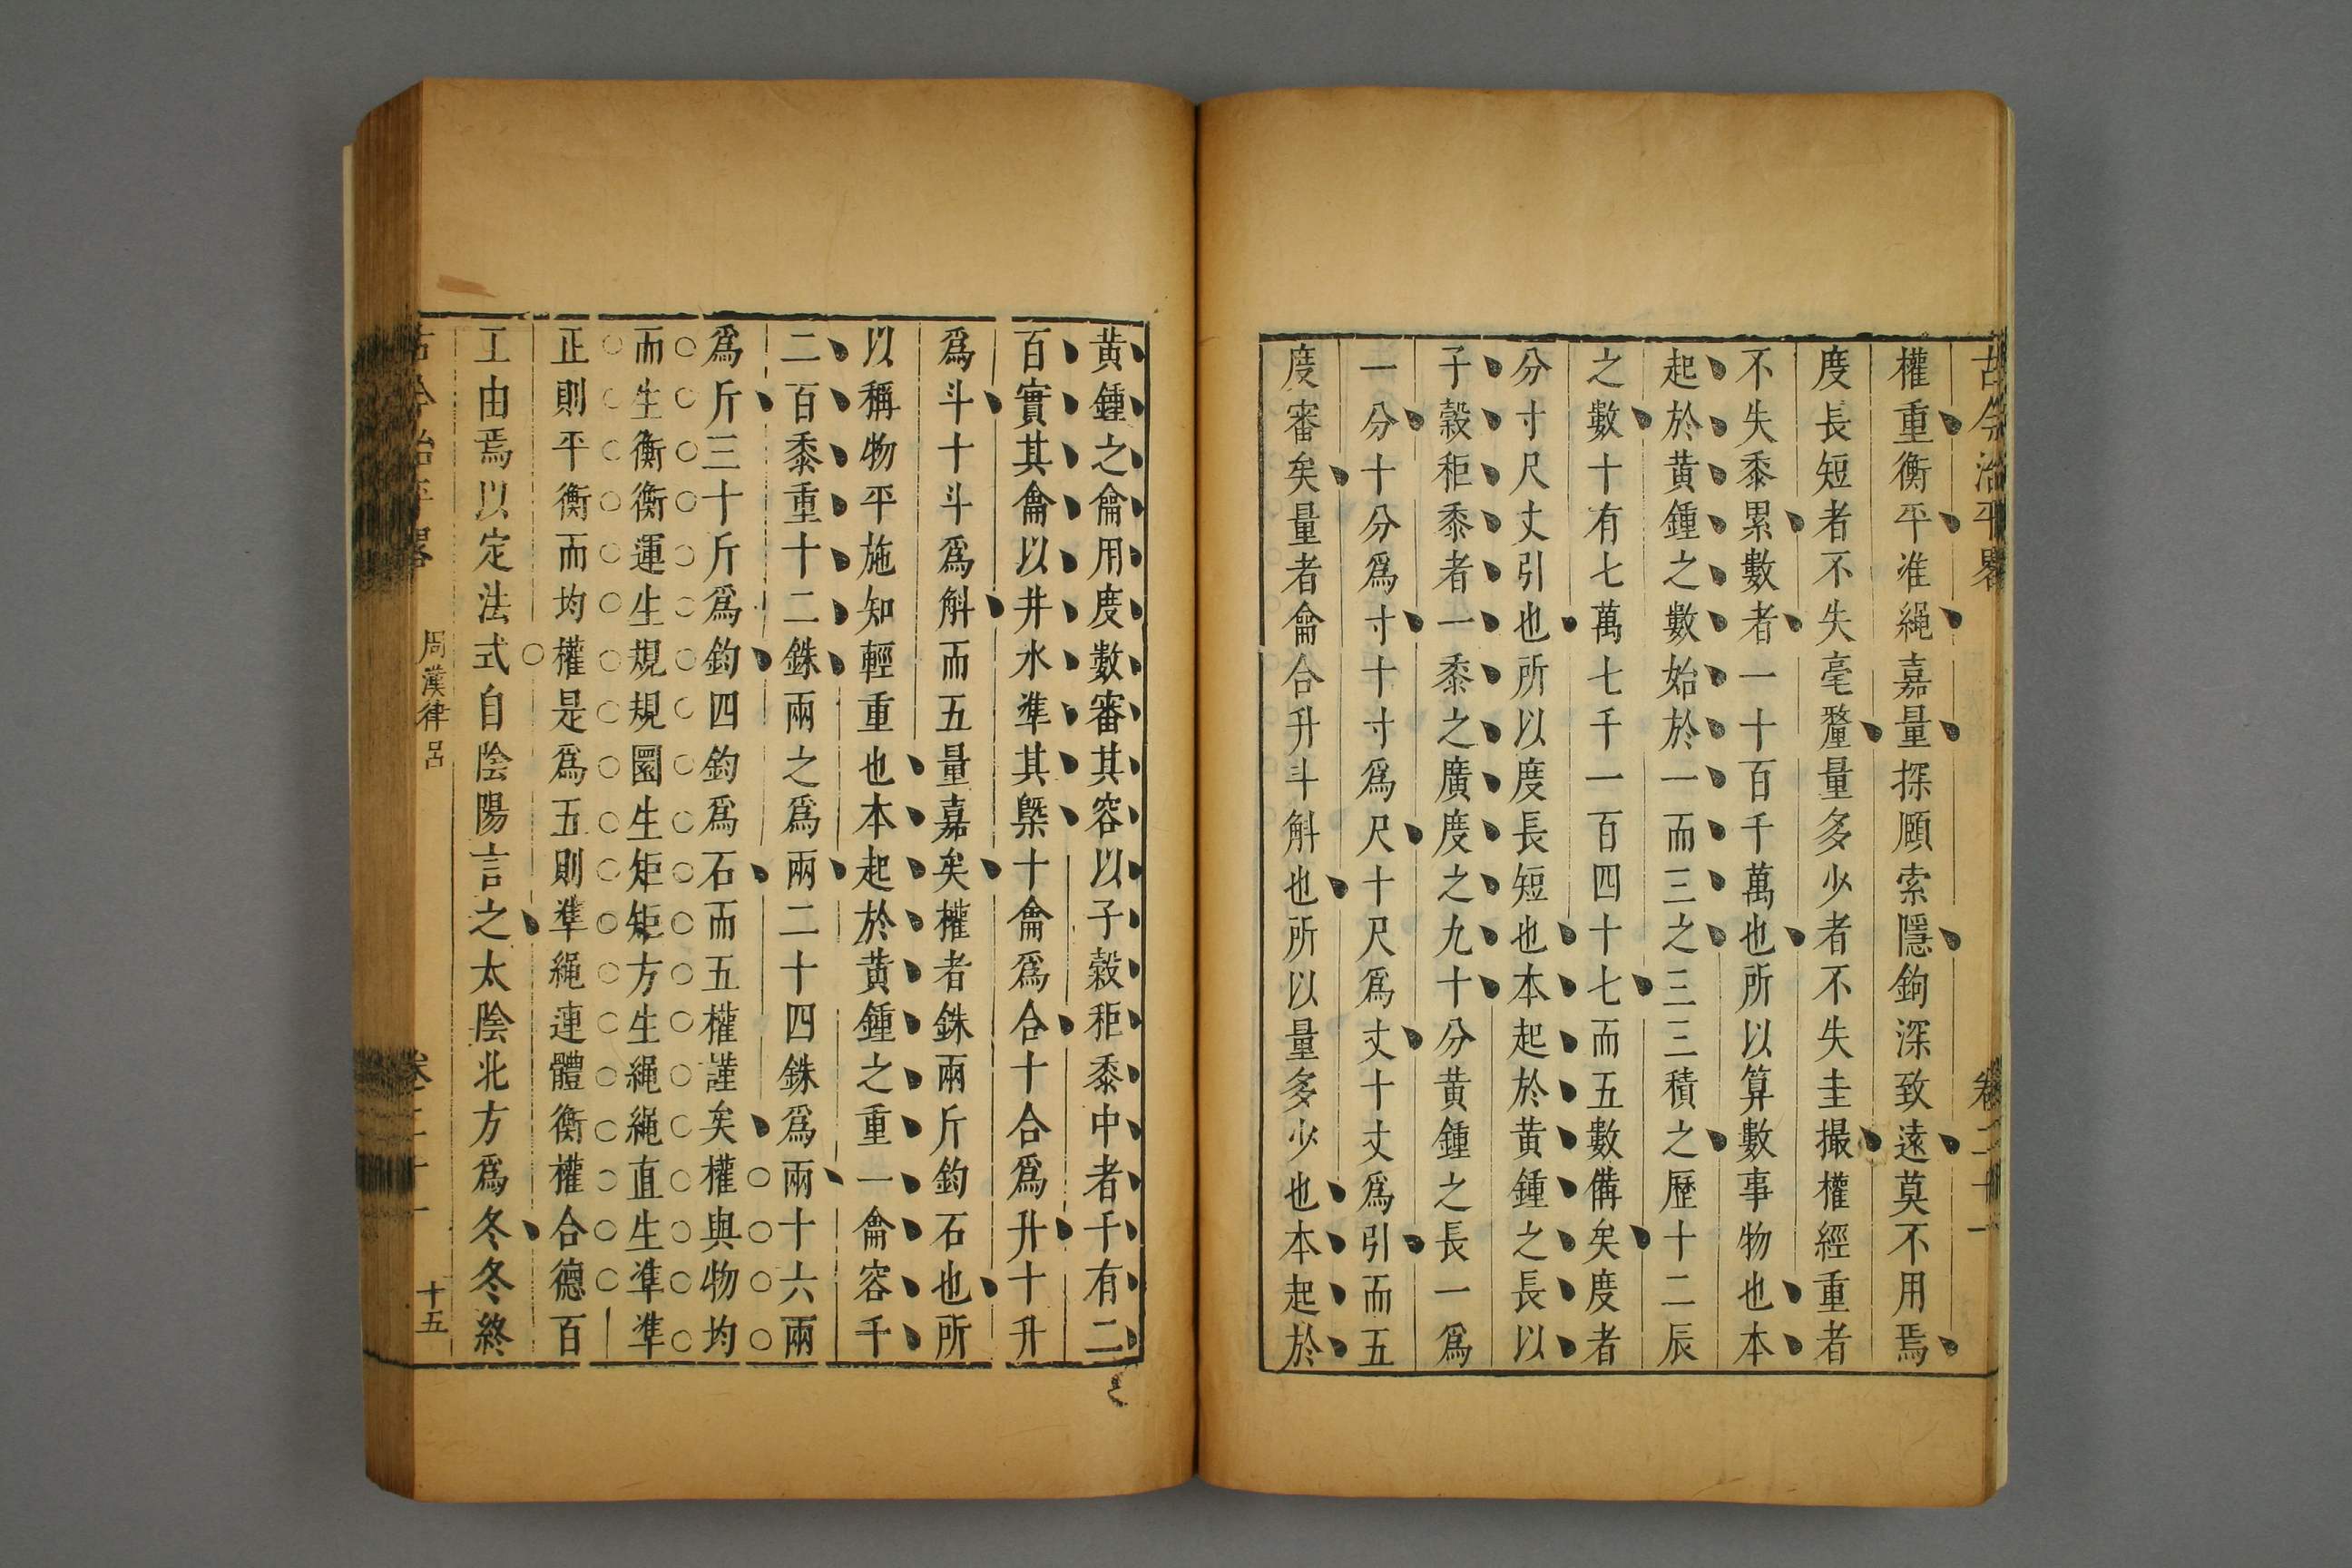 古今治平畧 卷二十一
權重衡平准繩嘉量探賾索隱鉤深致遠莫不用焉
度長短者不失毫釐量多少者不失圭撮權經重者
不失黍累數者一十百千萬也所以算數事物也本
起於黃鍾之數始於一而三之三三積之歷十二辰
之數十有七萬七千一百四十七而五數備矣度者
分寸尺丈引也所以度長短也本起於黃鍾之長以
子穀秬黍者一黍之廣度之九十分黃鍾之長一爲
一分十分爲寸十寸爲尺十尺爲丈十丈爲引而五
度審矣量者龠合升斗斛也所以量多少也本起於
黃鍾之龠用度數審其容以子穀秬黍中者千有二
百實其龠以井水準其槩十龠爲合十合爲升十升
爲斗十斗爲斛而五量嘉矣權者銖兩斤鈞石也所
以稱物平施知輕重也本起於黃鍾之重一龠容千
二百黍重十二銖兩之爲兩二十四銖爲兩十六兩
爲斤三十斤爲鈞四鈞爲石而五權謹矣權與物均
而生衡衡運生規規圜生矩矩方生繩繩直生準準
正則平衡而均權是爲五則準繩連體衡權合德百
工由焉以定法式自陰陽言之太陰北方爲冬冬終
古今治平畧 周漢律呂 卷二十一 十五